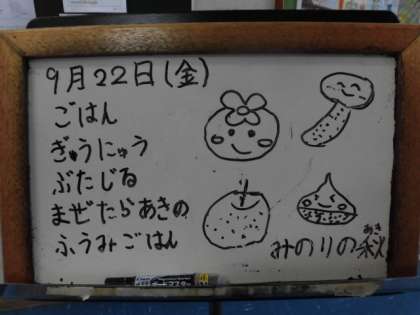 9月22日(金)
ごはん
ぎゅうにゅう
ぶたじる
まぜたらあきの
ふうみごはん
みのりの秋
あき
ボードマスター